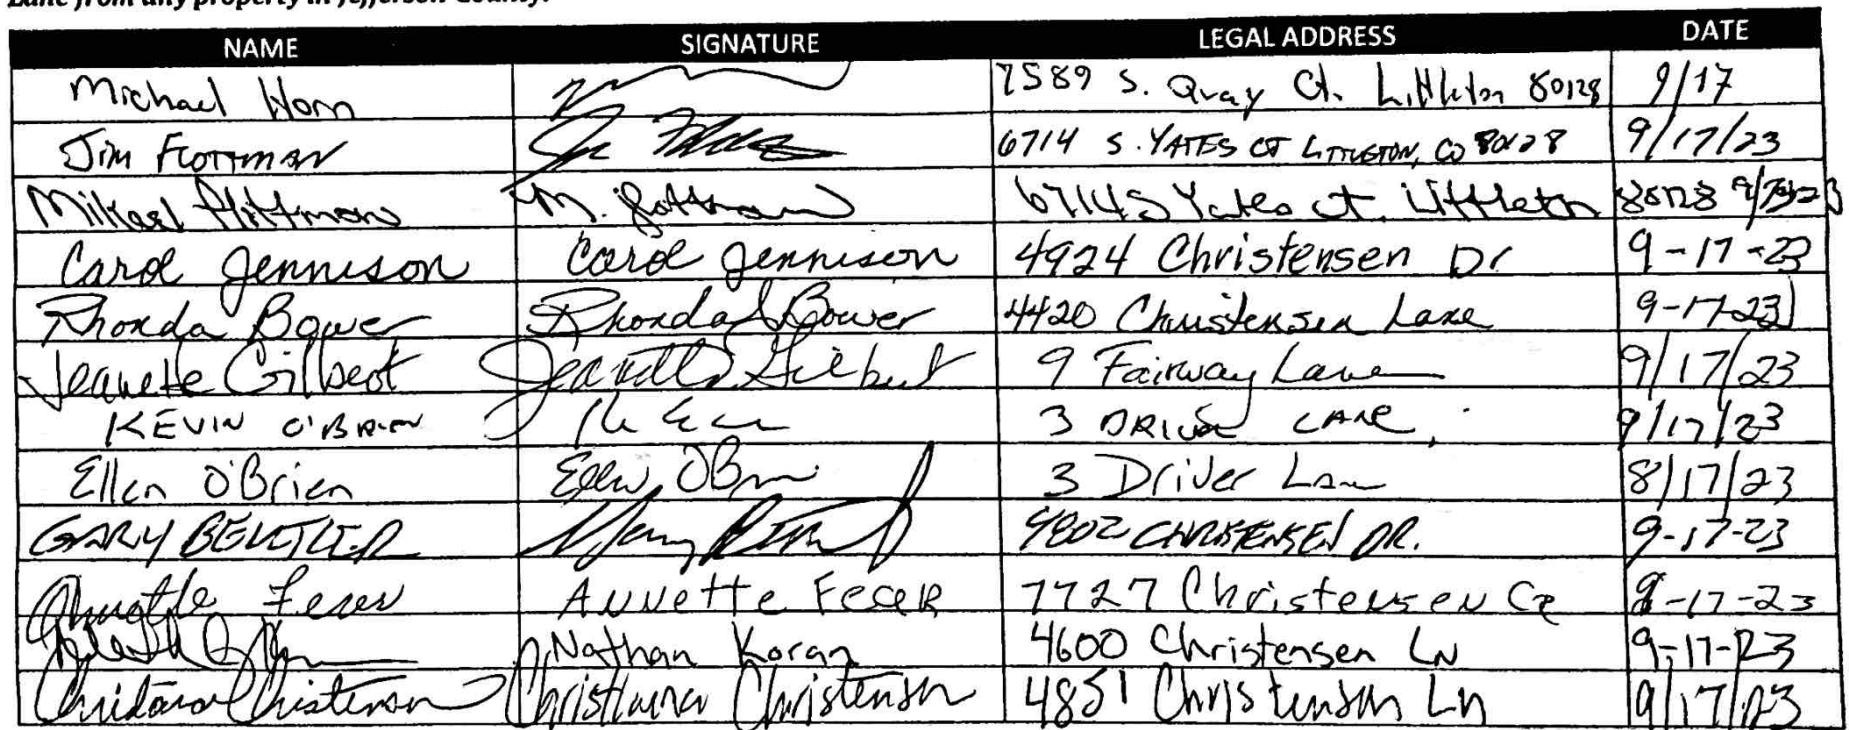 Lane from any property in Jefferson County.
NAME SIGNATURE LEGAL ADDRESS DATE
Michael Horn 7589 S. Quay Ct. Littleton 80128 9/17
Jim Flottman 6714 S. YATES CT LITTLETON, CO 80128 9/17/23
M. 6714 S Yates ct. Littleton 80128
Carol Jennison Carol Jennison 4924 Christensen Dr 9-17-23
Rhonda Bower Rhonda Bower 4420 Christensen Lane 9-17-23
Jeanette Gilbert Jeanette Gilbert 9 Fairway Lane 9/17/23
KEVIN O'BRIEN 3 DRIVER LANE 9/17/23
Ellen O'Brien Ellen OBrien 3 Driver Lane 8/17/23
GARY 4802 CHRISTENSEN DR. 9-17-23
Annette Feger ANNette FegeR 7727 Christensen 9-17-23
Nathan Koran 4600 Christensen LN 9-17-23
Christensen Christensen 4851 Christensen Ln 9/17/23